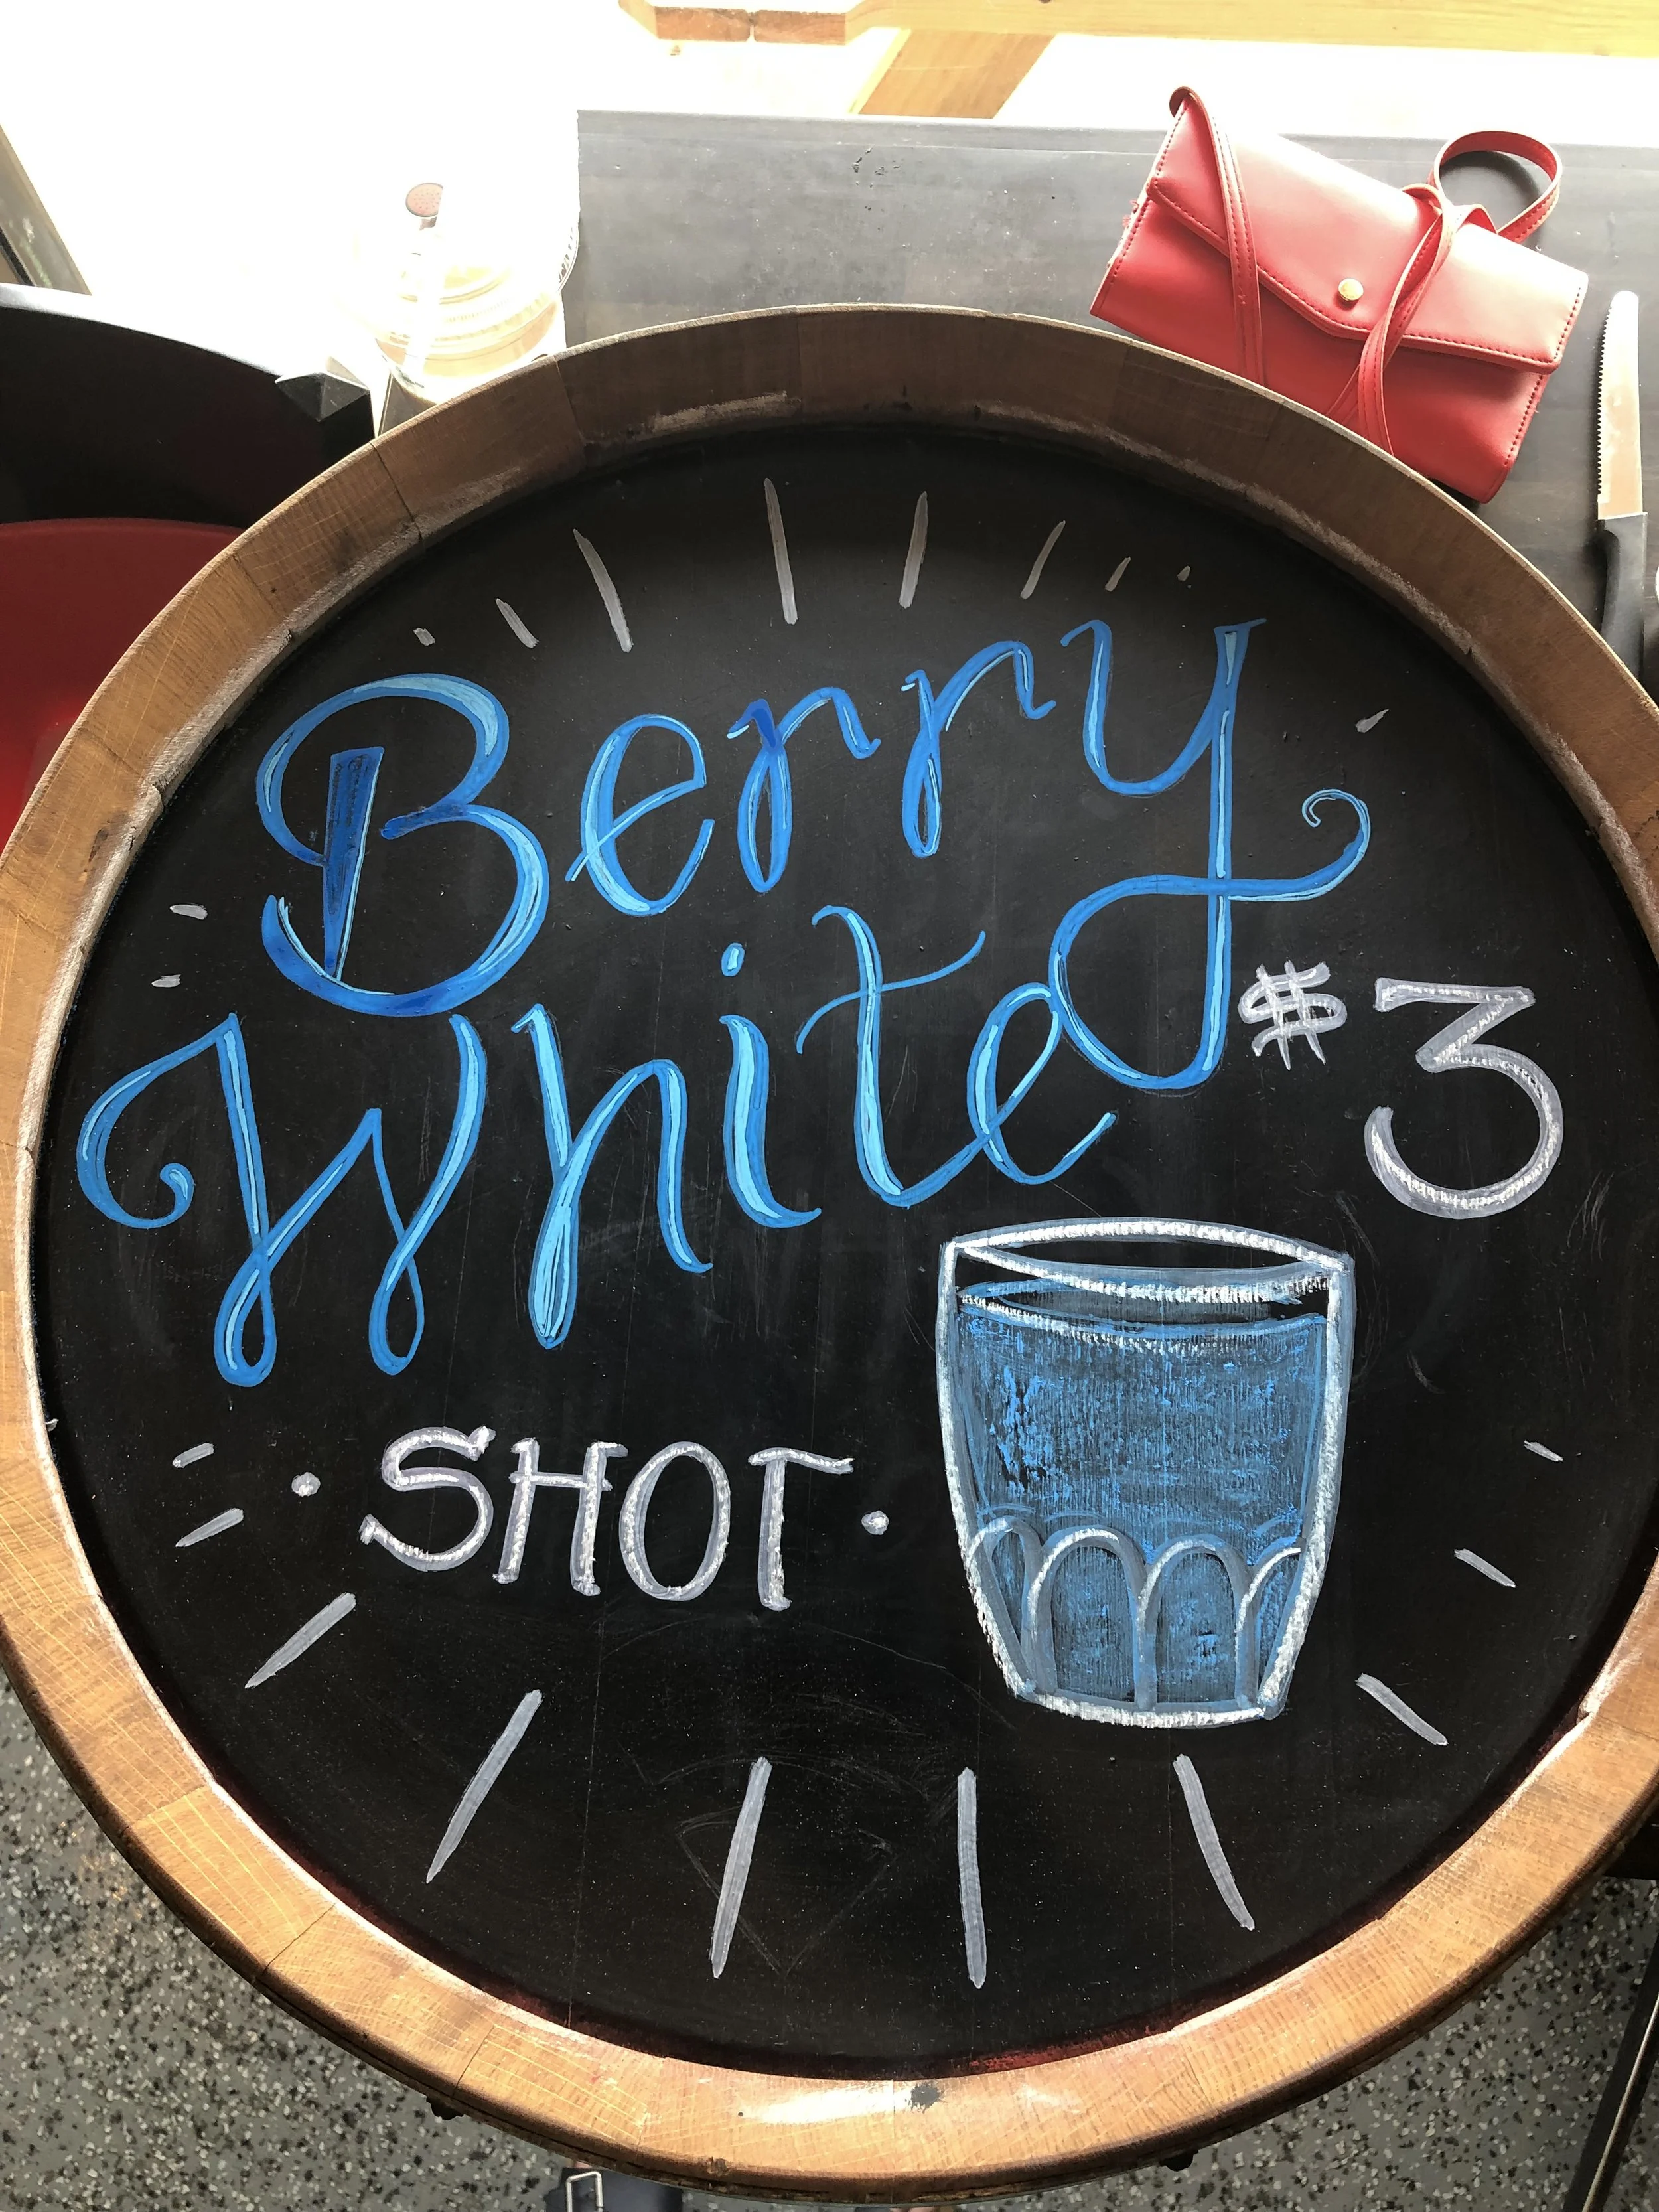 Berry
White
$3
· SHOT ·